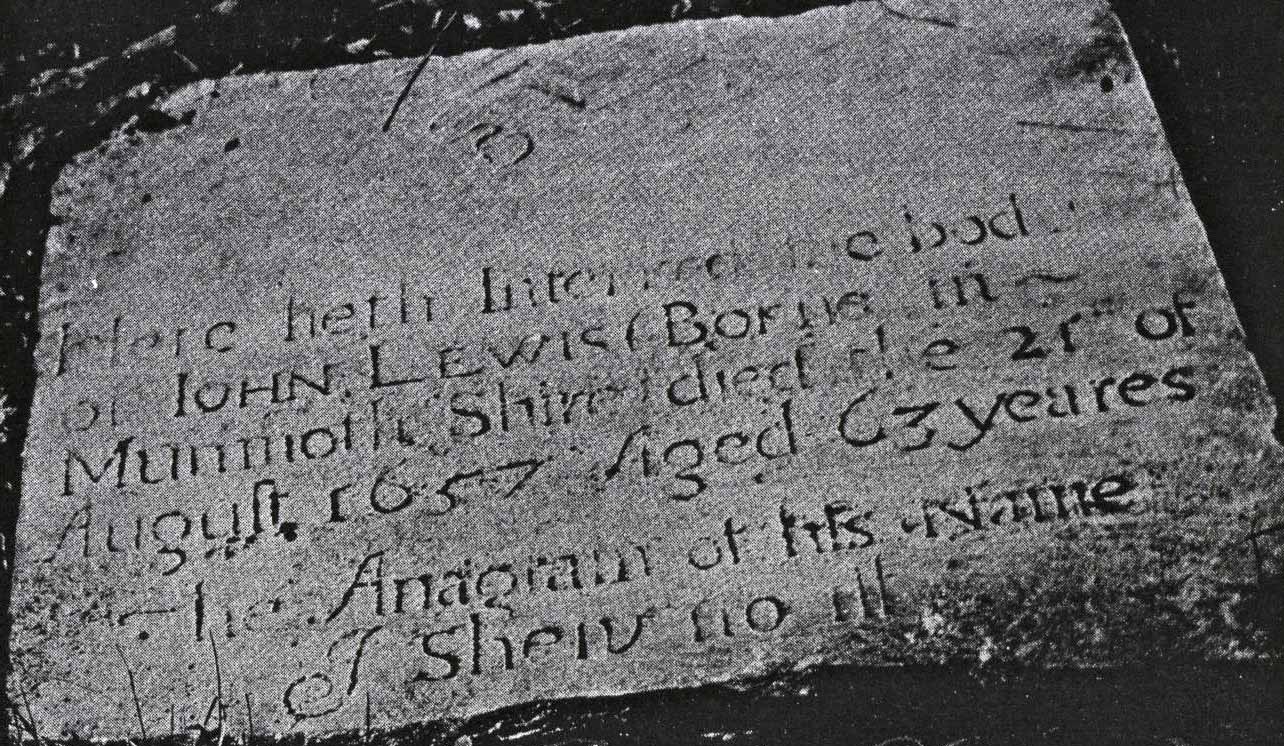 Here lieth Interred the body
of IOHN LEWIS (Borne in ~
Munmoth Shire) died the 21th of
August 1657 Aged 63 yeares
The Anagram of his Name
I Shew no ill